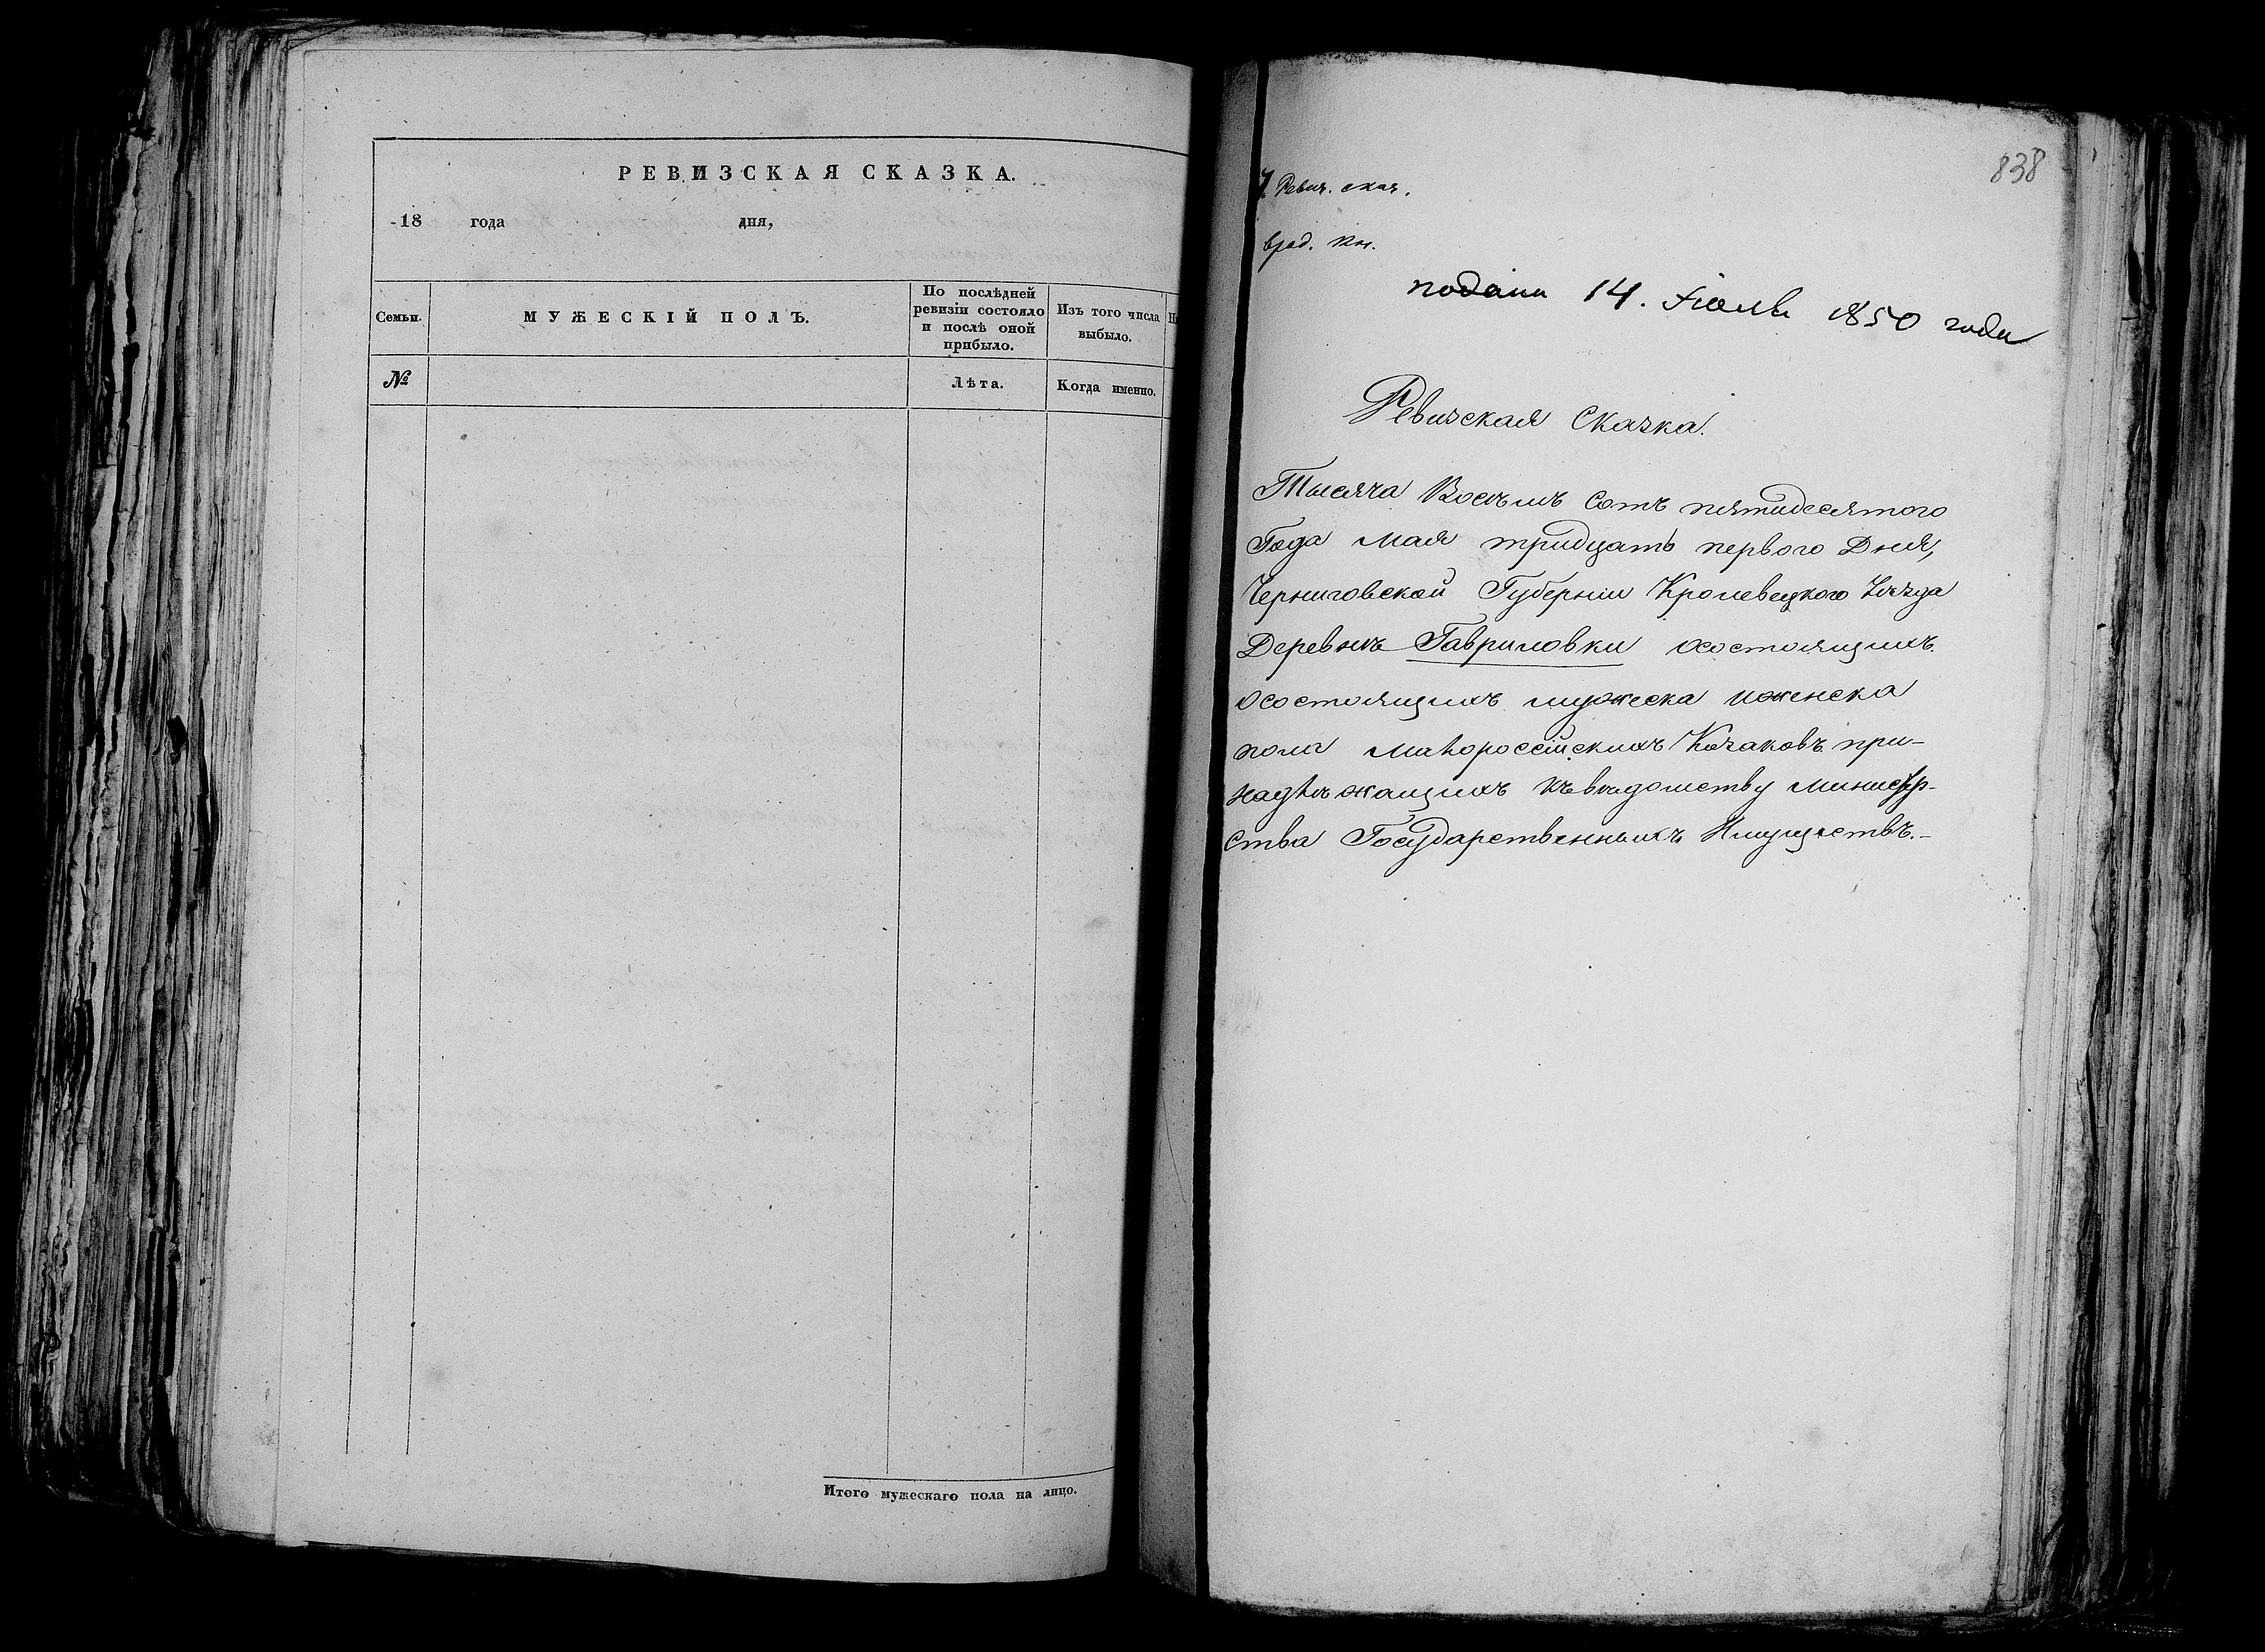 РЕВИЗСКАЯ СКАЗКА.
18 года дня,
Семьи.
МУЖЕСКІЙ ПОЛЪ.
По послѣдней
ревизіи состояло
и послѣ оной
прибыло.
Изъ того числа
выбыло.
№
Лѣта.
Когда именно.
Итого мужескаго пола на лицо.
838
Ревиз. сказ.
подана 14. Іюля 1850 года
Ревизская Сказка.
Тысяча Восѣмъ Сотъ пятидесятого
Года Мая тридцать первого Дня,
Черниговской Губерніи Кролевецкого Уѣзда
Деревнѣ Гавриловки осостоящихъ
осостоящихъ мужеска иженска
пола Малороссійскихъ Козаковъ при-
надлѣжащихъ къвѣдомству Министр-
ства Государственныхъ Имуществъ.-